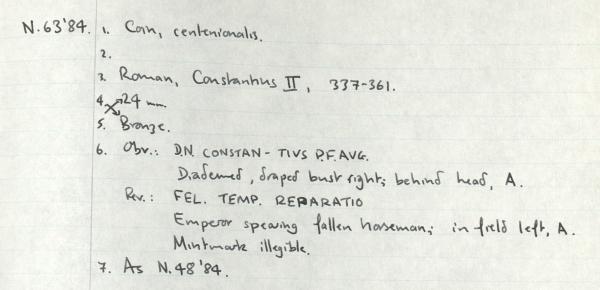 N.63'84. 1. Coin, centenionalis.
2.
3. Roman, Constantius II, 337-361.
4. 24 mm.
5. Bronze.
6. Obv.: D.N. CONSTAN - TIVS P.F. AVG.
Diademed, draped bust right; behind head, A.
Rev.: FEL. TEMP. REPARATIO
Emperor spearing fallen horseman; in field left, A.
Mintmark illegible.
7. As N.48'84.